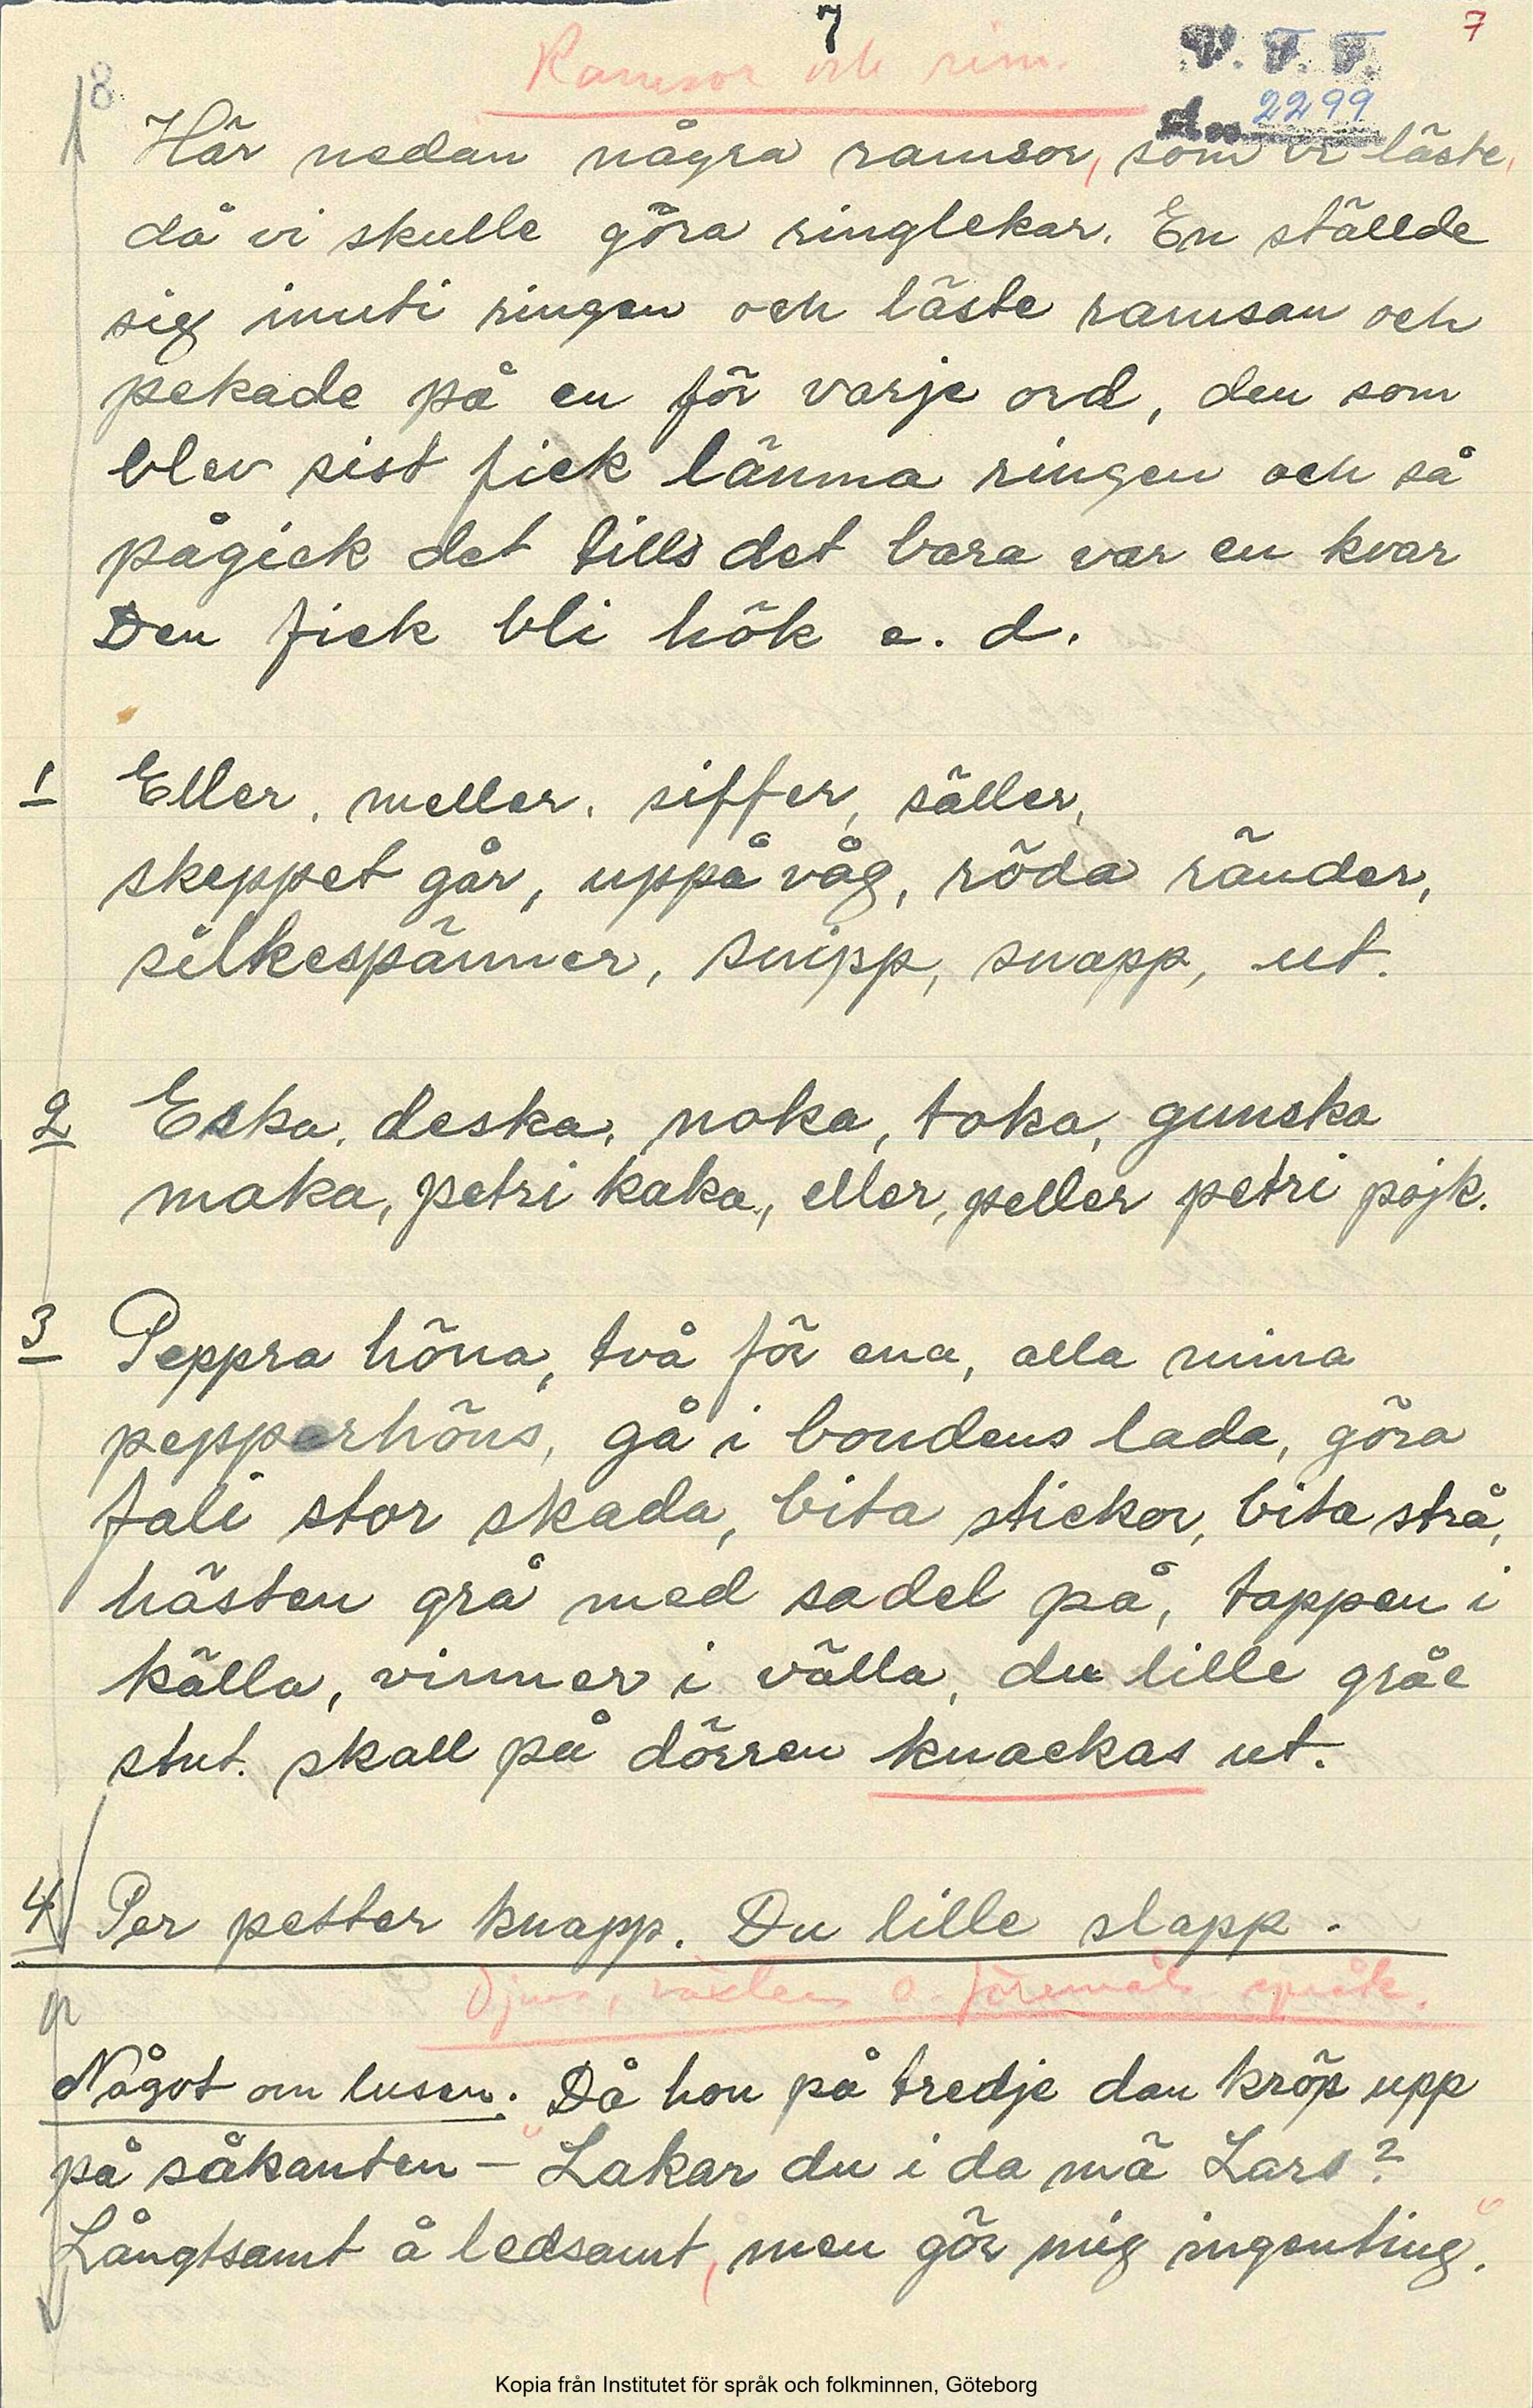 7
7
Ramsor och rim.
V. F. F.
18
d.no 2299
Här nedan några ramsor, som vi läste,
då vi skulle göra ringlekar. En ställde
sig inuti ringen och läste ramsan och
pekade på en för varje ord, den som
blev sist fick länma ringen och så
pågick det tills det bara var en kvar
Den fick bli hök e. d.
1 Eller, meller, siffer, säller,
skeppet går, uppå våg, röda ränder,
silkespänner, snipp, snapp, ut.
2 Eska, deska, noka, toka, gunska
maka, petri kaka, eller, peller petri pojk.
3 Peppra höna, två för ena, alla mina
pepperhöns, gå i bondens lada, göra
fali stor skada, bita stickor, bita strå,
hästen grå med sadel på, tappen i
källa, vinner i välla, du lille gråe
stut. skall på dörren knackas ut.
4 Per petter knapp. Du lille slapp.
Djurs, växters o. föremåls språk.
Något om lusen. Då hon på tredje dan kröp upp
på såkanten – "Lakar du i da mä Lars?
Långtsamt å ledsamt, men gör mig ingenting."
Kopia från Institutet för språk och folkminnen, Göteborg